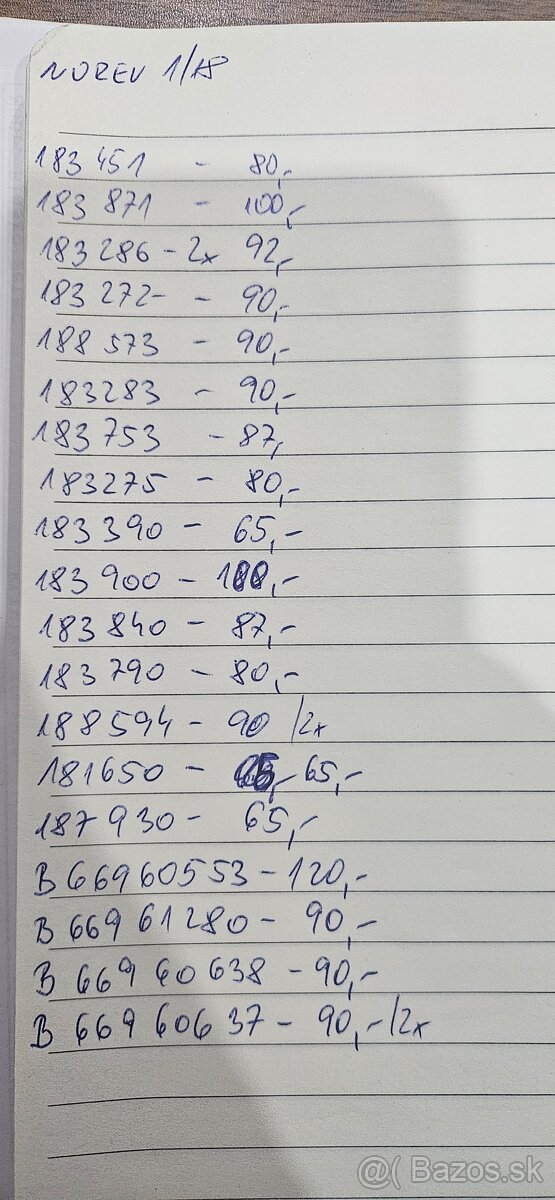 NOREV 1/18
183 451 - 80,-
183 871 - 100,-
183 286 - 2x 92,-
183 272 - 90,-
188 573 - 90,-
183283 - 90,-
183 753 - 87,-
183275 - 80,-
183 390 - 65,-
183 900 - 100,-
183 840 - 87,-
183 790 - 80,-
188594 - 90 /2x
181650 - 65,-
187 930 - 65,-
B 66960553 - 120,-
B 669 61280 - 90,-
B 669 60 638 - 90,-
B 669 606 37 - 90,- /2x
@( Bazos.sk